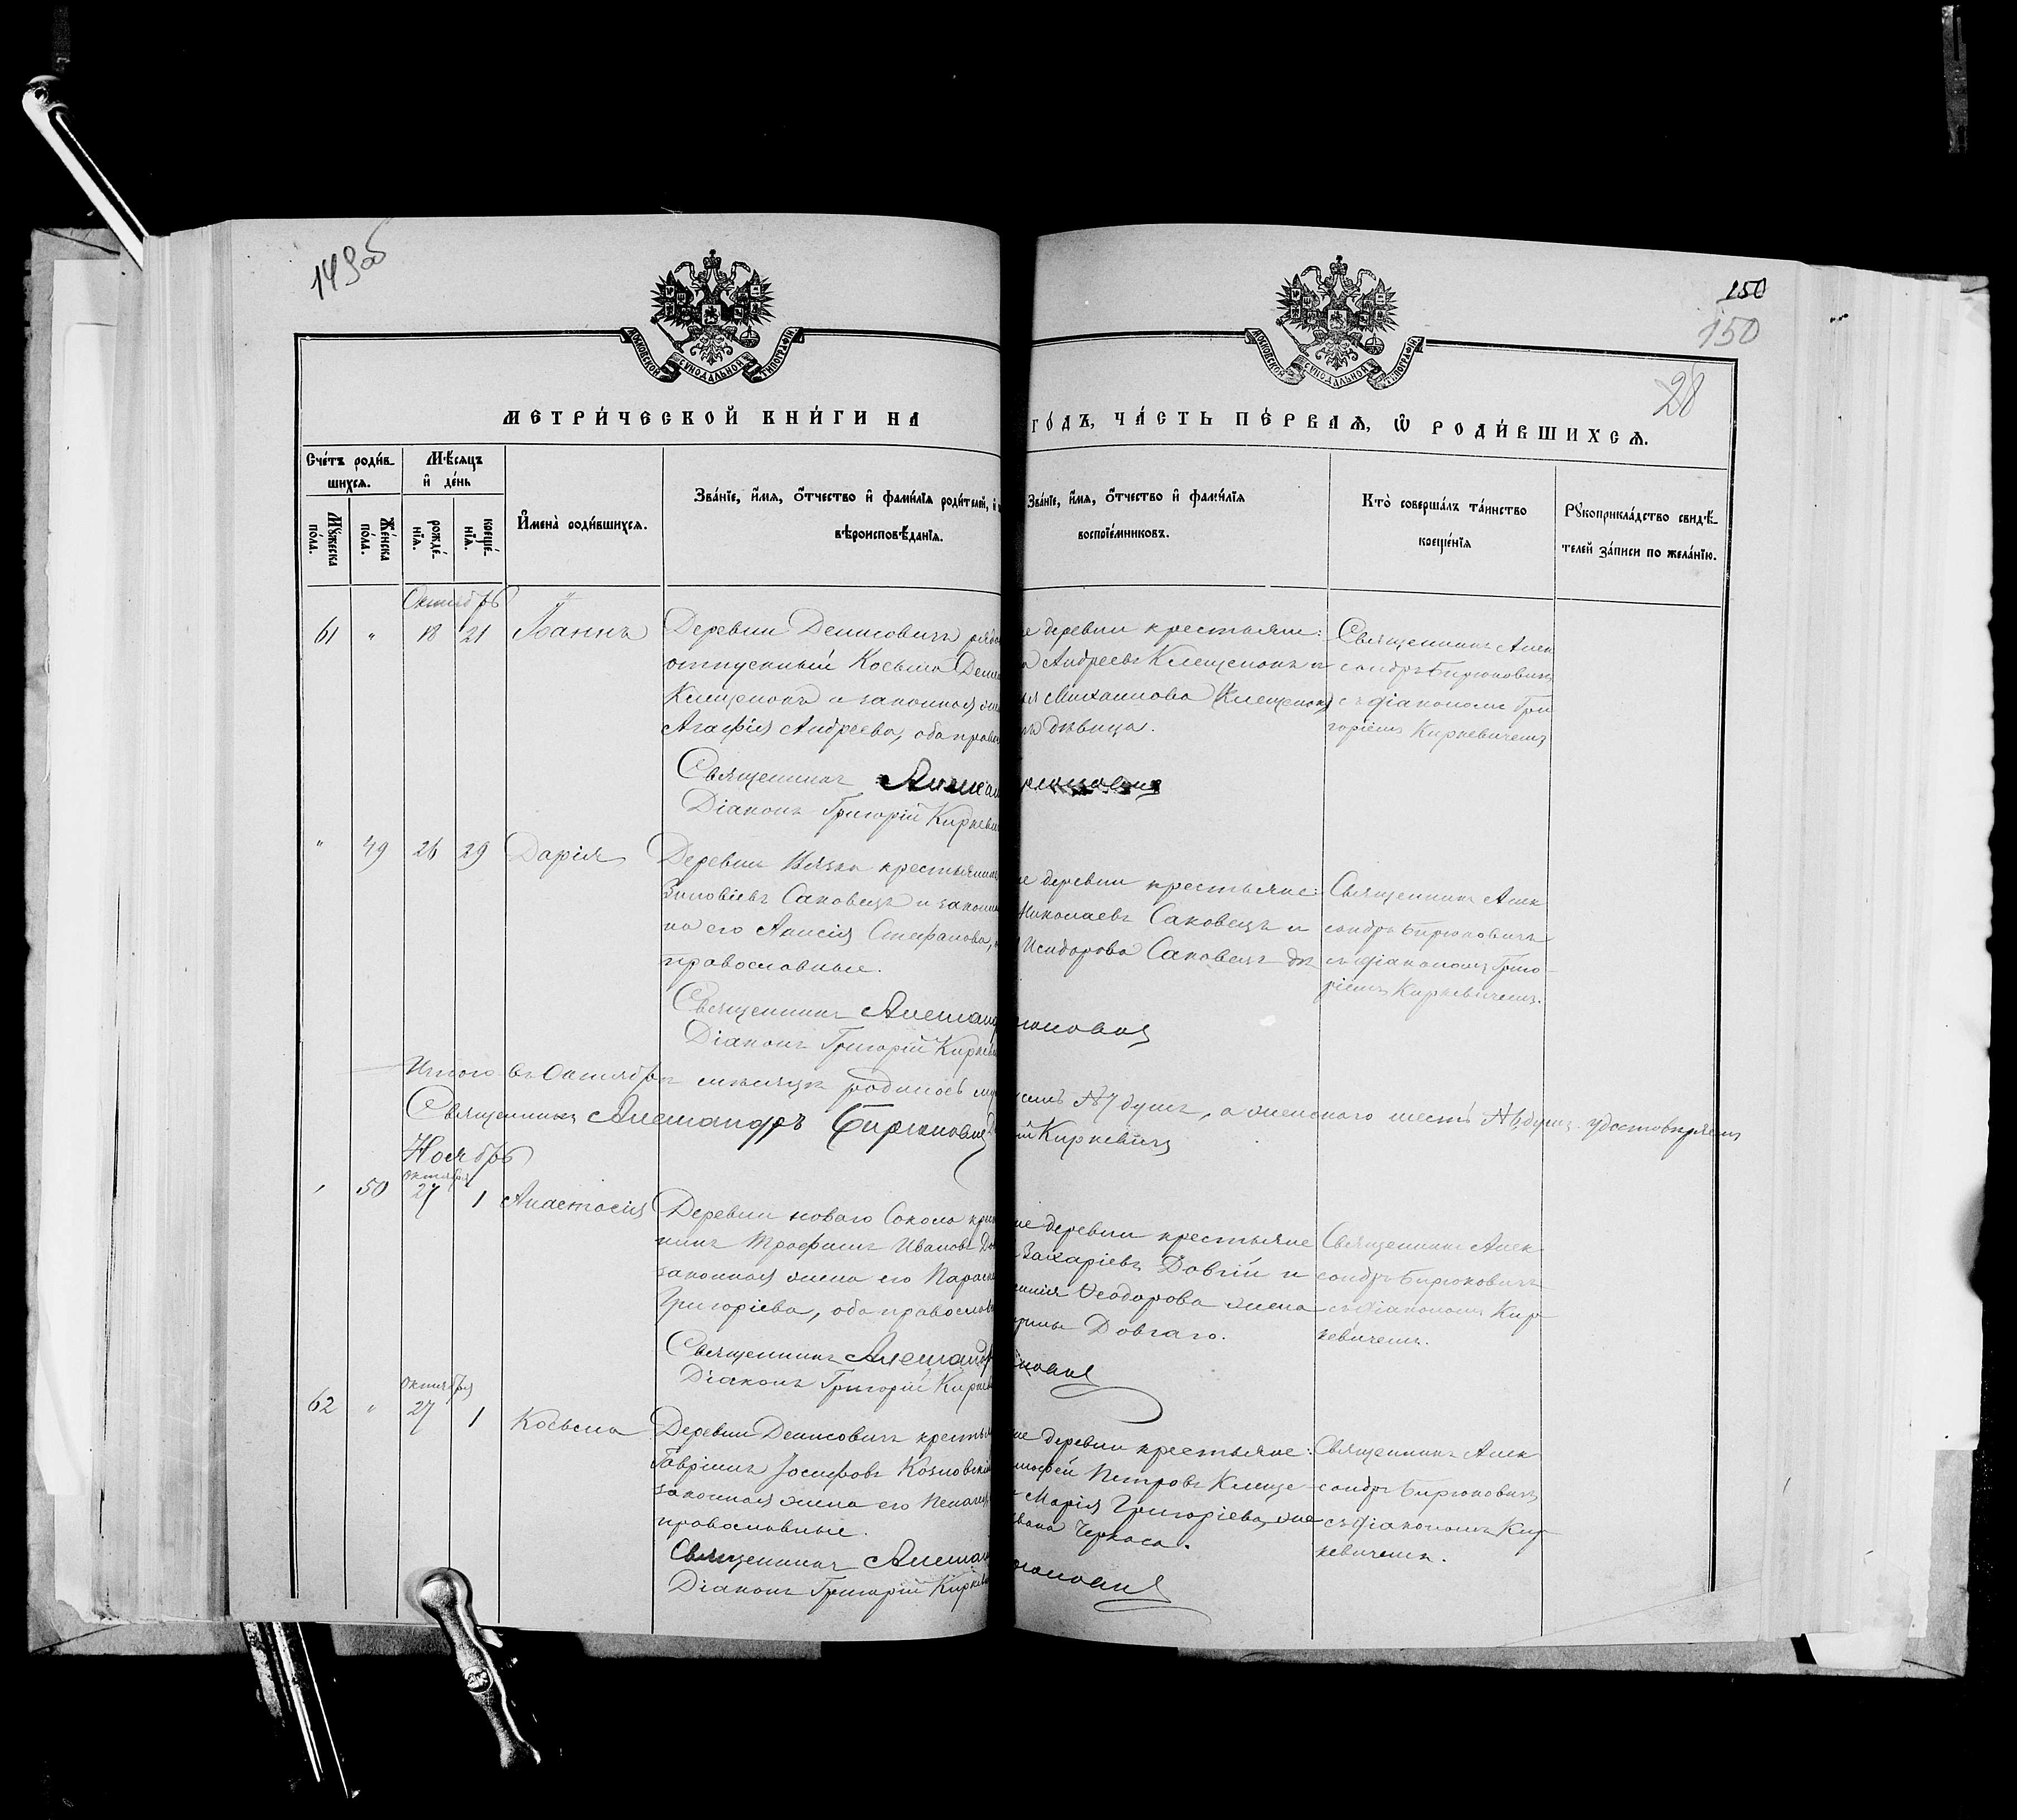 149 об
150
150
28
МОСКОВСКОЙ СѴНОДАЛЬНОЙ ТИПОГРАФІИ
МОСКОВСКОЙ СѴНОДАЛЬНОЙ ТИПОГРАФІИ
МЕТРИ́ЧЕСКОЙ КНИ́ГИ НА
ГО́ДЪ, ЧА́СТЬ ПЕ́РВАѦ, Ѡ҆ РОДИ́ВШИХСѦ.
Сче́тъ роди́в-
шихсѧ.
Мѣ́сѧцъ
и҆ де́нь
Мꙋ́жеска по́ла.
Же́нска по́ла.
рожде́-нїѧ.
креще́-нїѧ.
И҆мена̀ роди́вшихсѧ.
Зва́нїе, и҆́мѧ, ѻ҆́тчество и҆ фами́лїѧ роди́телей, и҆
вѣроисповѣ́данїѧ.
Зва́нїе, и҆́мѧ, ѻ҆́тчество и҆ фами́лїѧ
воспрїе́мниковъ.
Кто̀ соверша́лъ та́инство
креще́нїѧ
Рꙋкоприкла́дство свидѣ́-
телей за́писи по жела́нїю.
Октябрь
61 " 18 21 Іоаннъ
Деревни Денисовичъ рядо
отпускный Косьма Дени
Клещенокъ и законная же
Агафія Андреева, оба право
Священникъ Алекса
Діаконъ Григорій Киркеви
е деревни крестьяне:
Андреевъ Клещенокъ и
Михаилова Клещенокъ
дѣвица.
Священникъ Алек
сандръ Бирюковичъ
съ діакономъ Гри
горіемъ Киркевичемъ
" 49 26 29 Дарія
Деревни крестьянинъ
Зиновіевъ Саковецъ и закон
на его Анисія Стефанова,
православные.
Священникъ Александ
Діаконъ Григорій Киркеви
е деревни крестьяне:
Николаевъ Саковецъ и
Исидорова Саковецъ дѣ
Священникъ Алек
сандръ Бирюковичъ
съ діакономъ Григо-
ріемъ Киркевичемъ.
Итого въ Октябрѣ мѣсяцѣ родилось му
душъ, а женскаго шесть душъ. удостовѣряемъ
Священникъ Александръ Бирюковичъ
Киркевичъ
Ноябрь
октября
" 50 27 1 Анастасія
Деревни новаго Сокола крес
нинъ Трофимъ Ивановъ До
законная жена его Параск
Григоріева, оба православ
Священникъ Александр
Діаконъ Григорій Киркев
е деревни крестьяне
Захаріевъ Довгій и
Ѳеодорова жена
Довгаго.
Священникъ Алек
сандръ Бирюковичъ
съ діакономъ Кир
кевичемъ.
октября
62 " 27 1 Косьма
Деревни Денисовичъ кресть
Гавріилъ Іосифовъ Козловскі
законная жена его Пелаг
православные.
Священникъ Алексан
Діаконъ Григорій Киркев
е деревни крестьяне:
Петровъ Клеще
Марія Григоріева, же
Ивана Черкаса.
Священникъ Алек
сандръ Бирюковичъ
съ діакономъ Кир
кевичемъ.